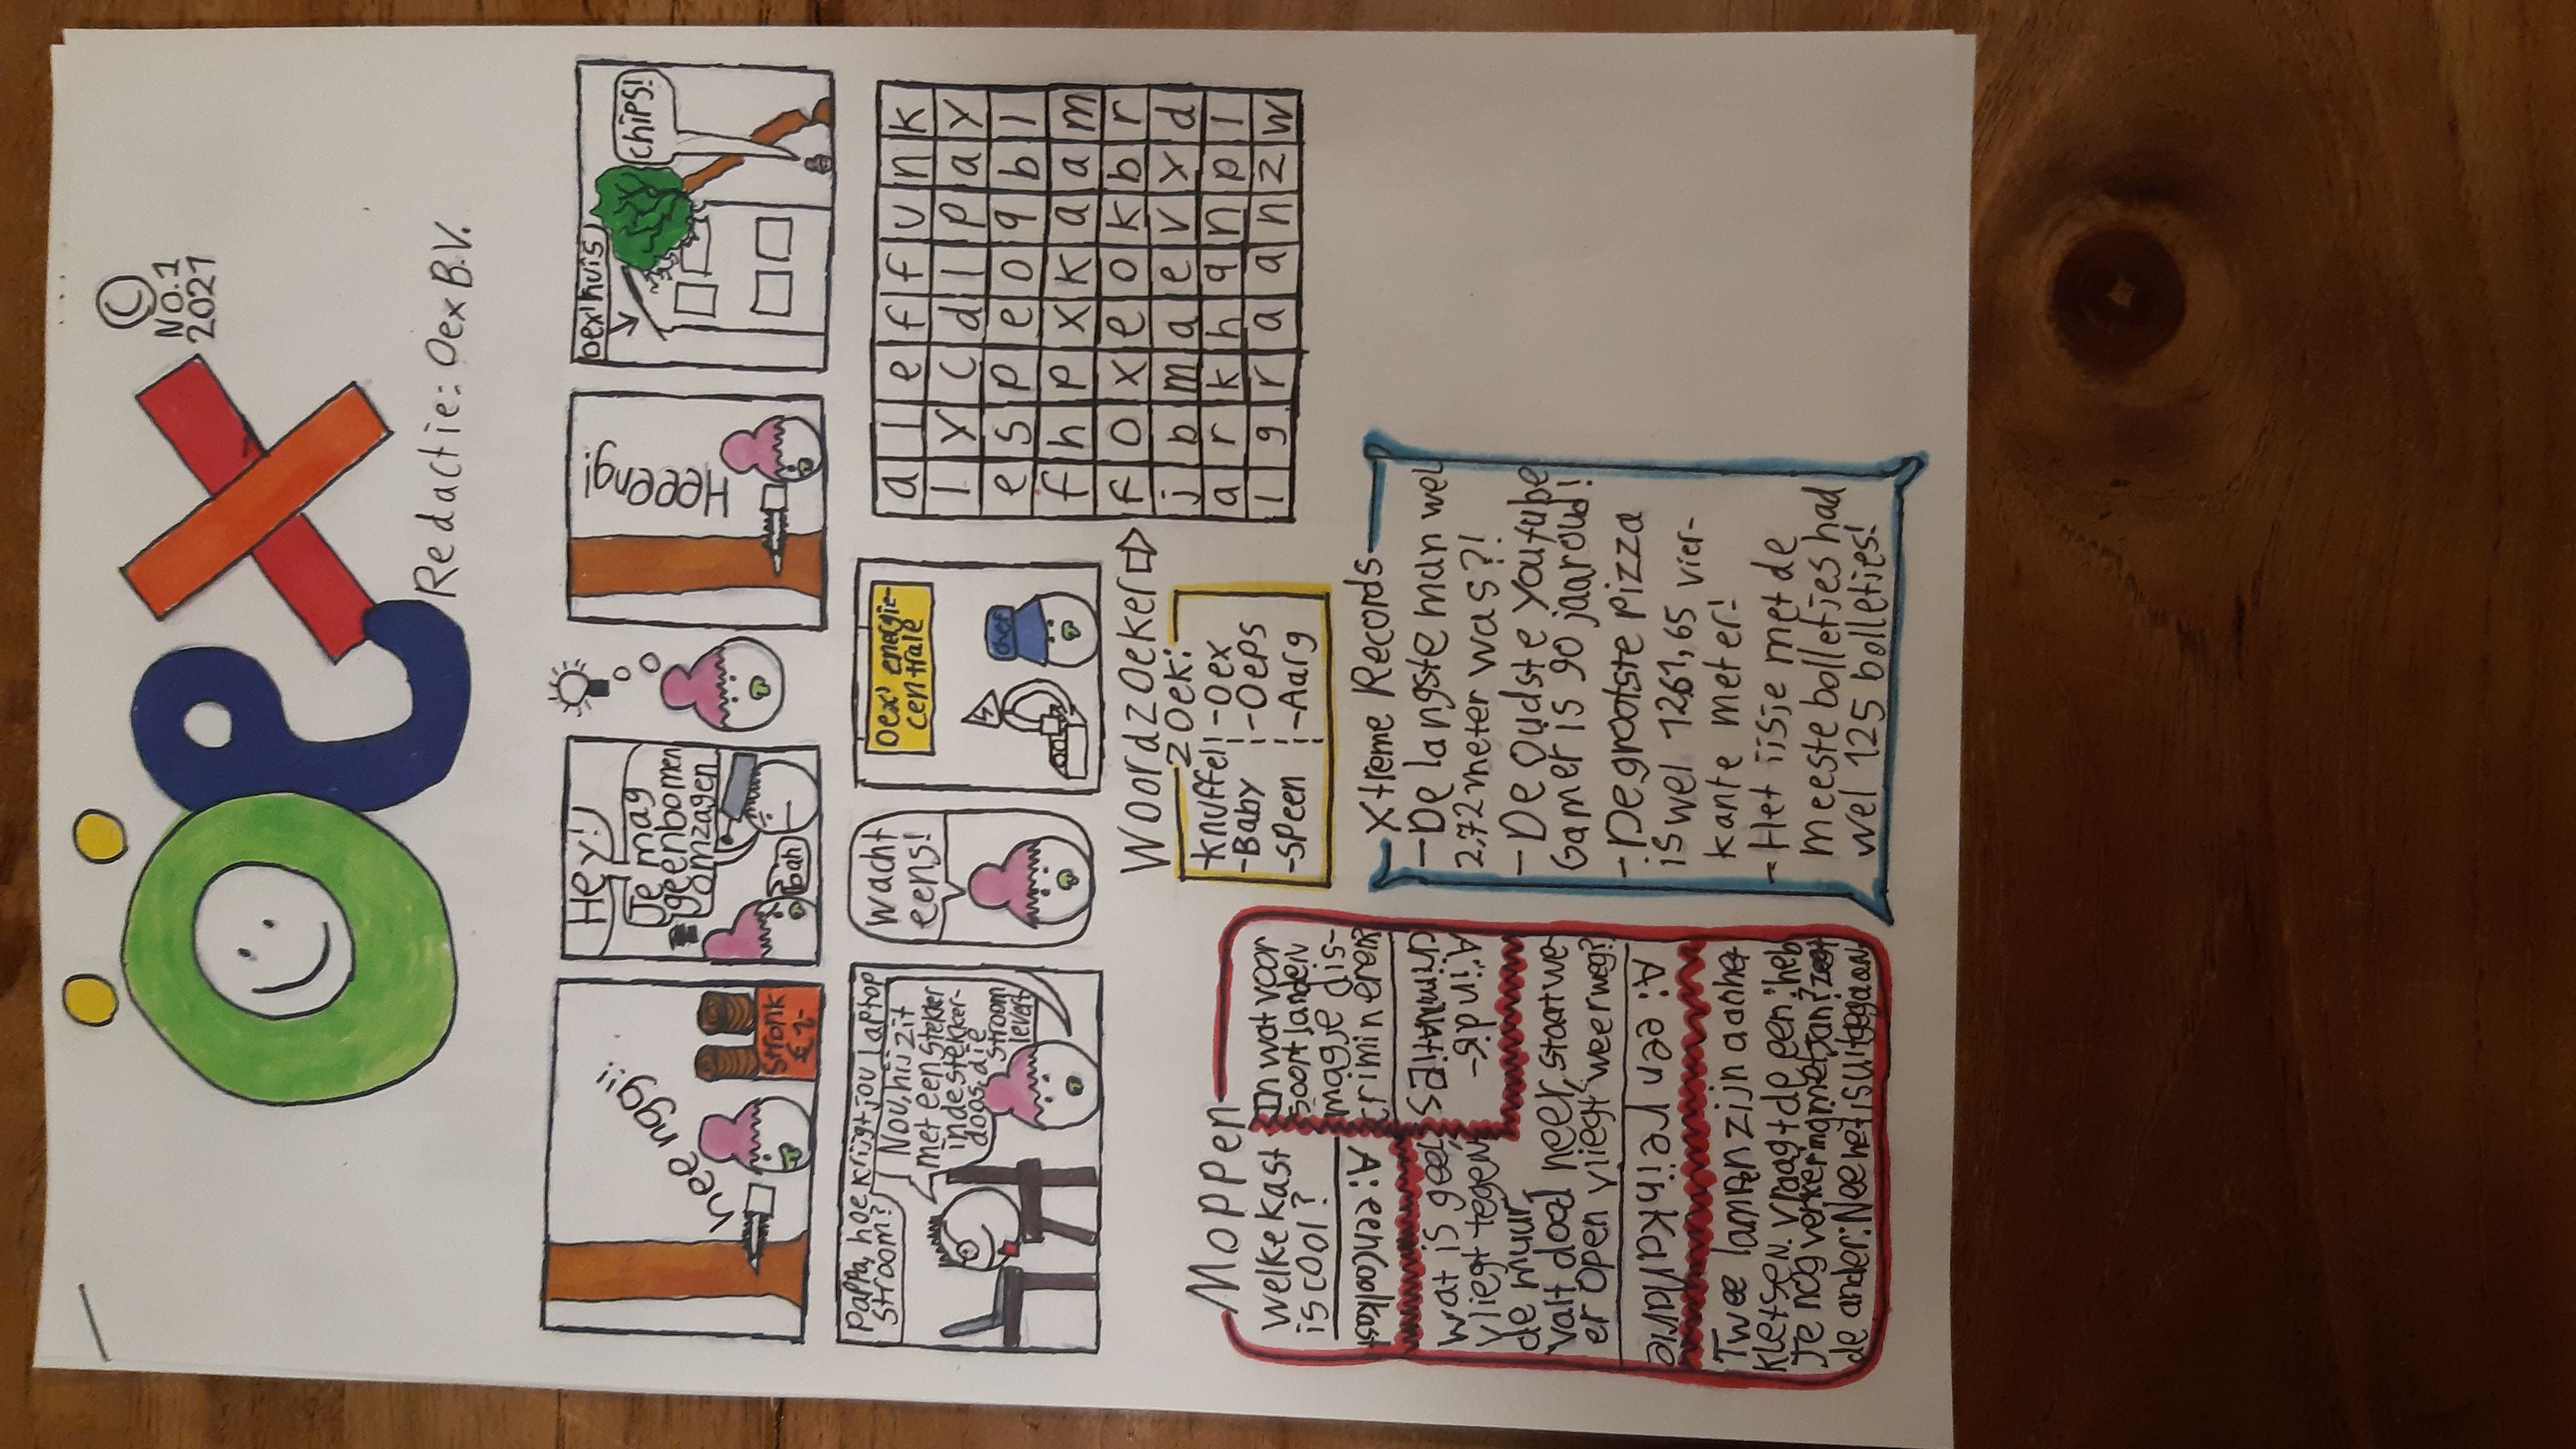 Öex
©
NO.1
2021
Redactie: Oex B.V.
heengg!!
Stronk
€ 1-
Hey!
Je mag
geen bomen
omzagen
bah
Heeeng!
Oex' huis
chips!
Pappa, hoe krijgt jou laptop
stroom?
Nou, hij zit
met een stekker
in de stekker-
doos, die
stroom
levert
wacht
eens!
Oex' energie-
centrale
chef
a l e f f u n k
l y c d l p a y
e s p e o q b l
f h p x k a a m
f o x e o k b r
j b m a e v x d
a r k h q n p l
i g r a a n z w
Woordzoeker
Zoek:
-Knuffel -Oex
-Baby -Oeps
-Speen -Aarg
Moppen
Welke kast
is cool?
A: een coolkast
In wat voor
soort landen
mag je dis-
crimineren?
A: in dis-
criminatiES
Wat is geel,
vliegt tegen
de muur,
valt dood neer, staat we-
er open vliegt weer weg?
A: een reïnkanarie
Twee lampen zijn aan het
kletsen. vraagt de een: heb
Je nog verkering met Jan? zegt
de ander: Nee het is uitgegaan.
Xtreme Records
-De langste man wel
2,72 meter was?!
-De oudste Youtube
Gamer is 90 jaar oud!
-De grootste pizza
is wel 1261,65 vier-
kante meter!
-Het ijsje met de
meeste bolletjes had
wel 125 bolletjes!